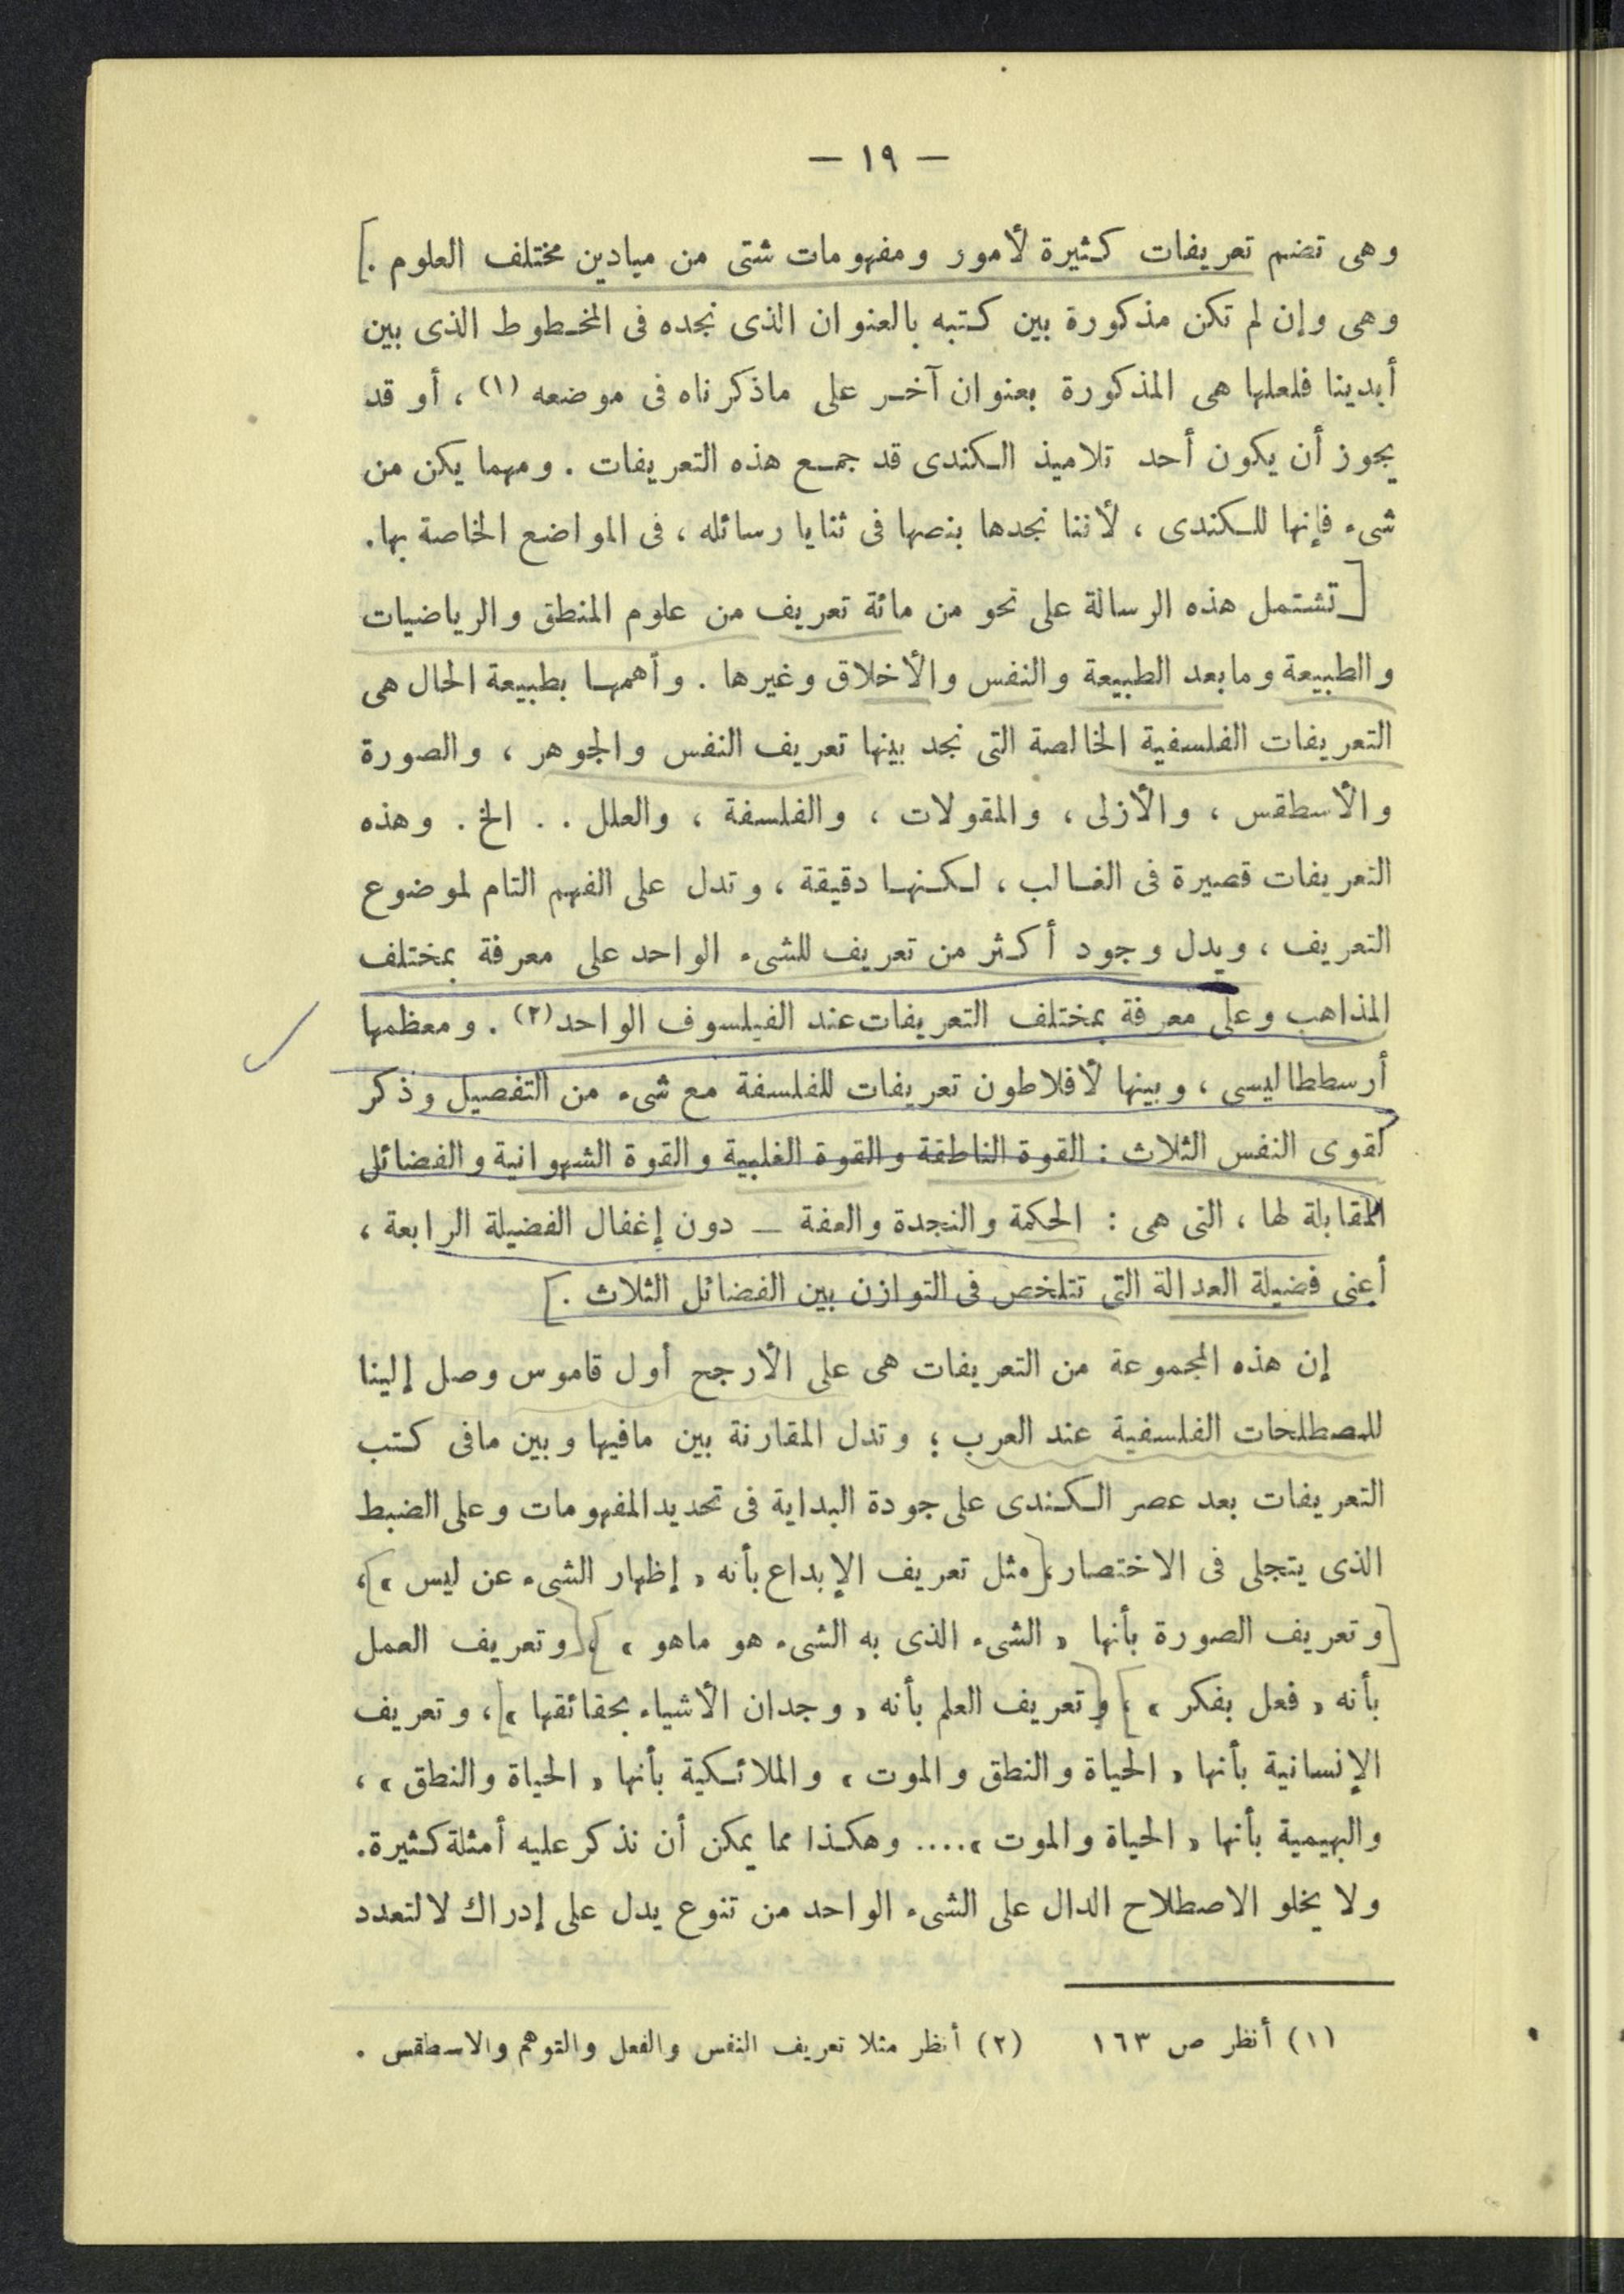 — ١٩ —
وهى تضم تعريفات كثيرة لأمور ومفهومات شتى من ميادين مختلف العلوم .
وهى وإن لم تكن مذكورة بين كتبه بالعنوان الذى نجده فى المخطوط الذى بين
أيدينا فلعلها هى المذكورة بعنوان آخر على ماذكرناه فى موضعه (١) ، أو قد
يجوز أن يكون أحد تلاميذ الكندى قد جمع هذه التعريفات . ومهما يكن من
شىء فإنها للكندى ، لأننا نجدها بنصها فى ثنايا رسائله ، فى المواضع الخاصة بها.
[تشتمل هذه الرسالة على نحو من مائة تعريف من علوم المنطق والرياضيات
والطبيعة ومابعد الطبيعة والنفس والأخلاق وغيرها . وأهمها بطبيعة الحال هى
التعريفات الفلسفية الخالصة التى نجد بينها تعريف النفس والجوهر ، والصورة
والأسطقس ، والأزلى ، والمقولات ، والفلسفة ، والعلل . . الخ . وهذه
التعريفات قصيرة فى الغالب ، لكنها دقيقة ، وتدل على الفهم التام لموضوع
التعريف ، ويدل وجود أكثر من تعريف للشىء الواحد على معرفة بمختلف
المذاهب وعلى معرفة بمختلف التعريفات عند الفيلسوف الواحد (٢) . ومعظمها
أرسططاليسى ، وبينها لأفلاطون تعريفات للفلسفة مع شىء من التفصيل وذكر
لقوى النفس الثلاث : القوة الناطقة والقوة الغلبية والقوة الشهوانية والفضائل
المقابلة لها ، التى هى : الحكمة والنجدة والعفة — دون إغفال الفضيلة الرابعة ،
أعنى فضيلة العدالة التى تتلخص فى التوازن بين الفضائل الثلاث .]
إن هذه المجموعة من التعريفات هى على الأرجح أول قاموس وصل إلينا
للمصطلحات الفلسفية عند العرب ؛ وتدل المقارنة بين مافيها وبين مافى كتب
التعريفات بعد عصر الكندى على جودة البداية فى تحديد المفهومات وعلى الضبط
الذى يتجلى فى الاختصار ،[مثل تعريف الإبداع بأنه « إظهار الشىء عن ليس »]،
[وتعريف الصورة بأنها « الشىء الذى به الشىء هو ماهو »]،[وتعريف العمل
بأنه « فعل بفكر »]، و[تعريف العلم بأنه « وجدان الأشياء بحقائقها »]، وتعريف
الإنسانية بأنها « الحياة والنطق والموت » والملائكية بأنها « الحياة والنطق » ،
والبهيمية بأنها « الحياة والموت ».... وهكذا مما يمكن أن نذكر عليه أمثلة كثيرة.
ولا يخلو الاصطلاح الدال على الشىء الواحد من تنوع يدل على إدراك لالتعدد
(١) أنظر ص ١٦٣ (٢) أنظر مثلا تعريف النفس والفعل والتوهم والاسطقس .